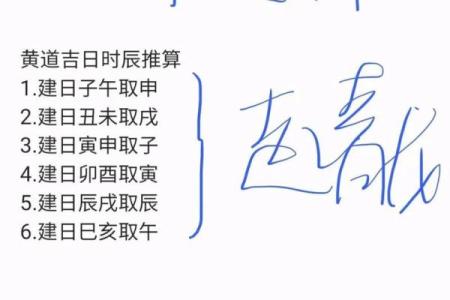 黄道吉日时辰推算
1.建日子午取申
2.建日丑未取戌
3.建日寅申取子
4.建日卯酉取寅
5.建日辰戌取辰
6.建日巳亥取午